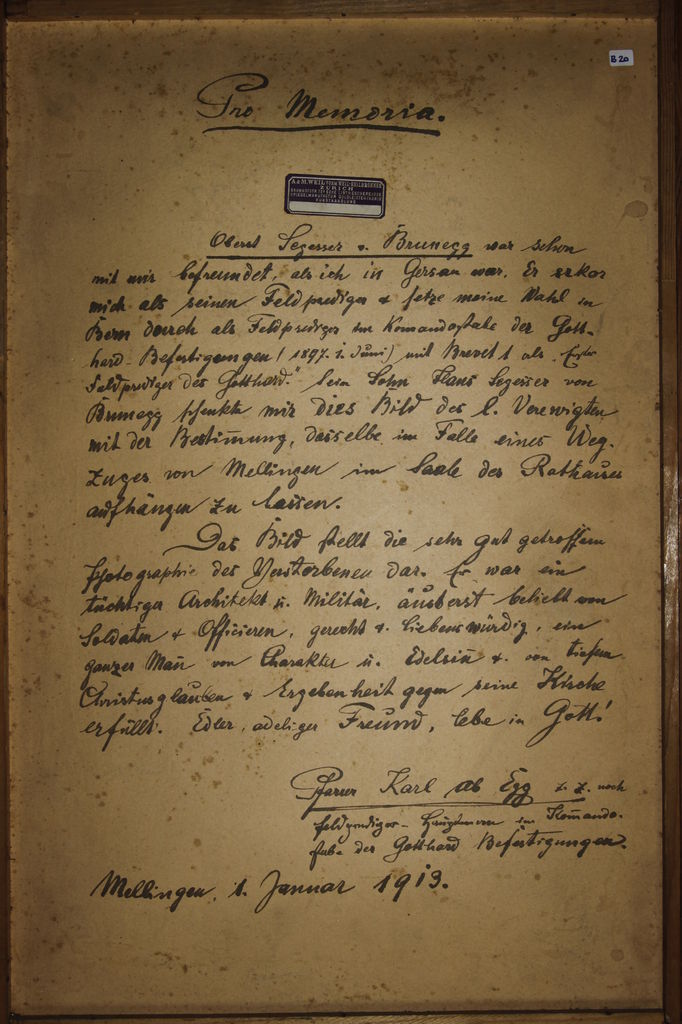 B 20
Pro Memoria.
A. & M. WEIL
ZÜRICH
Oberst Segesser v. Brunegg war schon
mit mir befreundet, als ich in Gersau war. Er erkor
mich als seinen Feldprediger & setze meine Wahl in
Bern durch als Feldprediger im Komandostabe der Gott-
hard-Befestigungen (1897. 1. Juni) mit Brevet 1 als „Erster
Feldprediger des Gotthard." Sein Sohn Hans Segesser von
Brunegg schenkte mir dies Bild des l. Verewigten
mit der Bestimmung, dasselbe im Falle eines Weg-
zuges von Mellingen im Saale des Rathauses
aufhängen zu lassen.
Das Bild stellt die sehr gut getroffene
Photographie des Verstorbenen dar. Er war ein
tüchtiger Architekt u. Militär, äußerst beliebt von
Soldaten & Officieren, gerecht & liebenswürdig, ein
ganzer Mañ von Charakter u. Edelsiñ & von tiefem
Christusglauben & Ergebenheit gegen seine Kirche
erfüllt. Edler, adeliger Freund, lebe in Gott!
Pfarrer Karl ab Egg z. Z. noch
Feldprediger-Hauptmann im Komando-
stabe der Gotthard Befestigungen.
Mellingen, 1. Januar 1913.